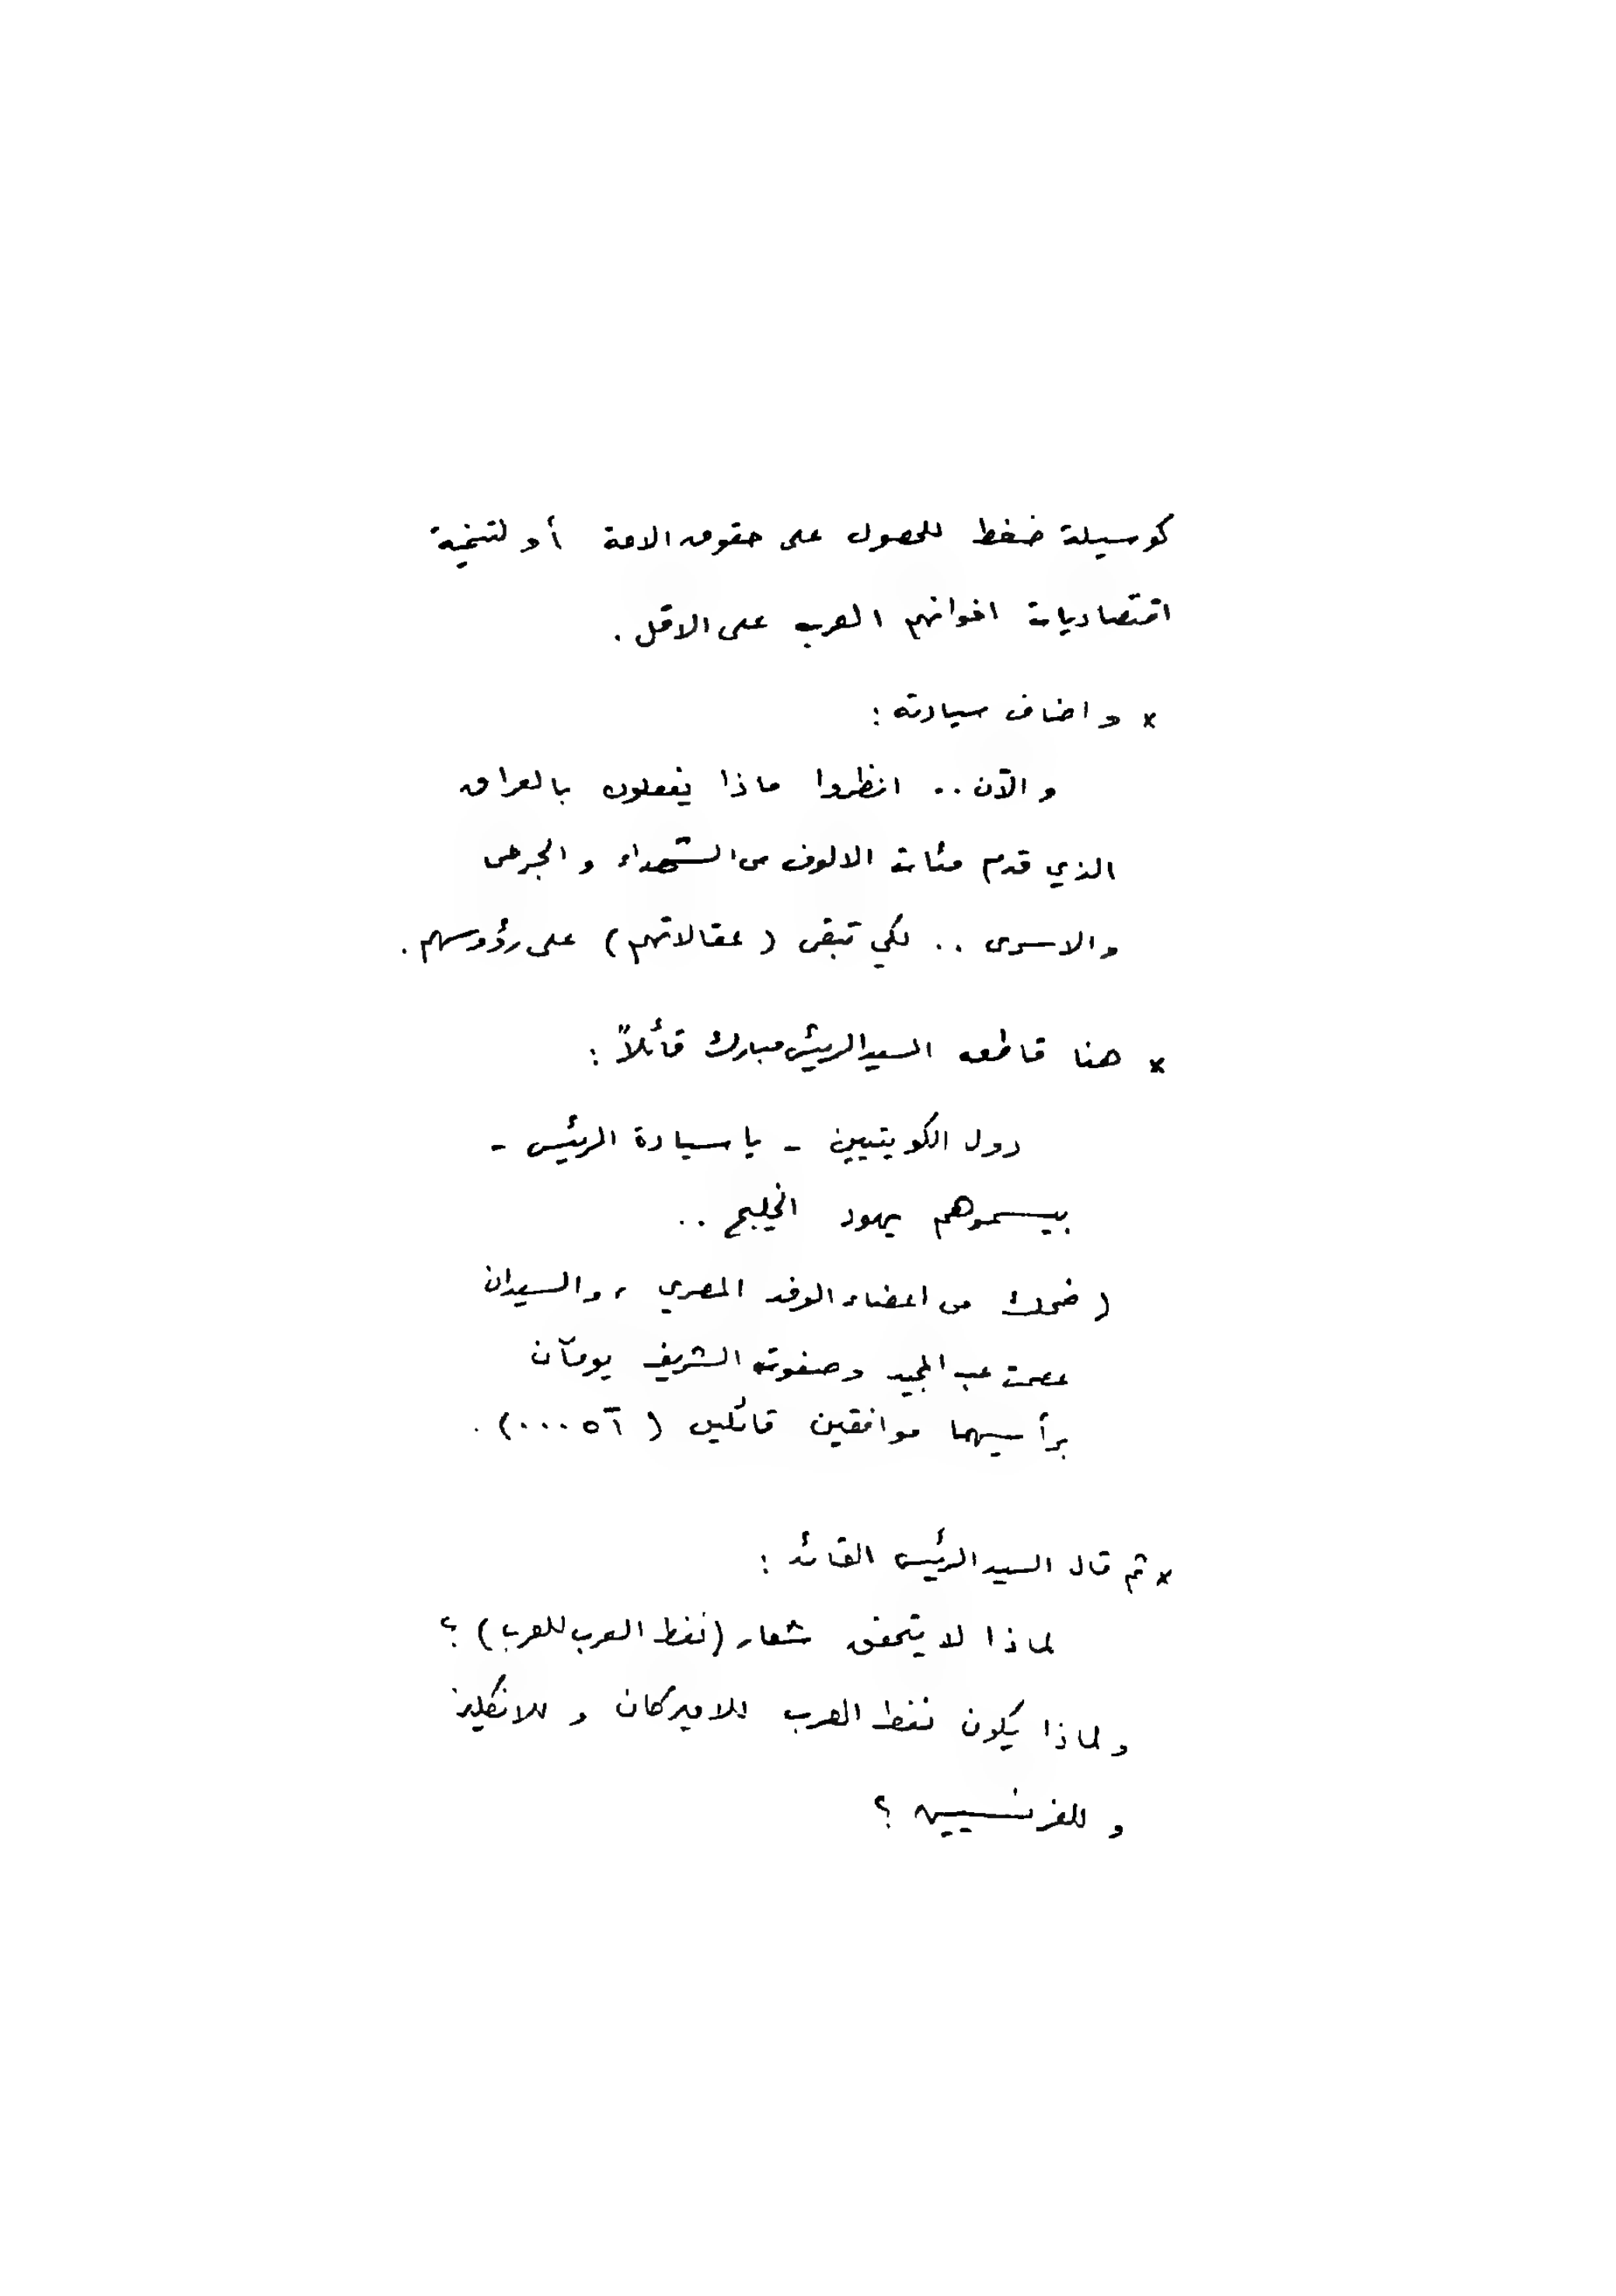 كوسيلة ضغط للحصول على حقوق الامة أو لتنمية
اقتصاديات اخوانهم العرب على الاقل .
× و اضاف سيادته :
و الآن .. انظروا ماذا يفعلون بالعراق
الذي قدم مئات الالوف من الشهداء و الجرحى
و الاسرى .. لكي تبقى ( عقالاتهم ) على رؤوسهم .
× هنا قاطعه السيد الرئيس مبارك قائلاً :
دول الكويتيين - يا سيادة الرئيس -
بيسموهم يهود الخليج ..
( ضحك من اعضاء الوفد المصري ، و السيدان
عصمت عبد المجيد و صفوت الشريف يومآن
برأسيهما موافقين قائلين ( آه ... ) .
× ثم قال السيد الرئيس القائد :
لماذا لا يتحقق شعار ( نفط العرب للعرب ) ؟
و لماذا يكون نفط العرب للاميركان و للانكليز
و للفرنسيين ؟